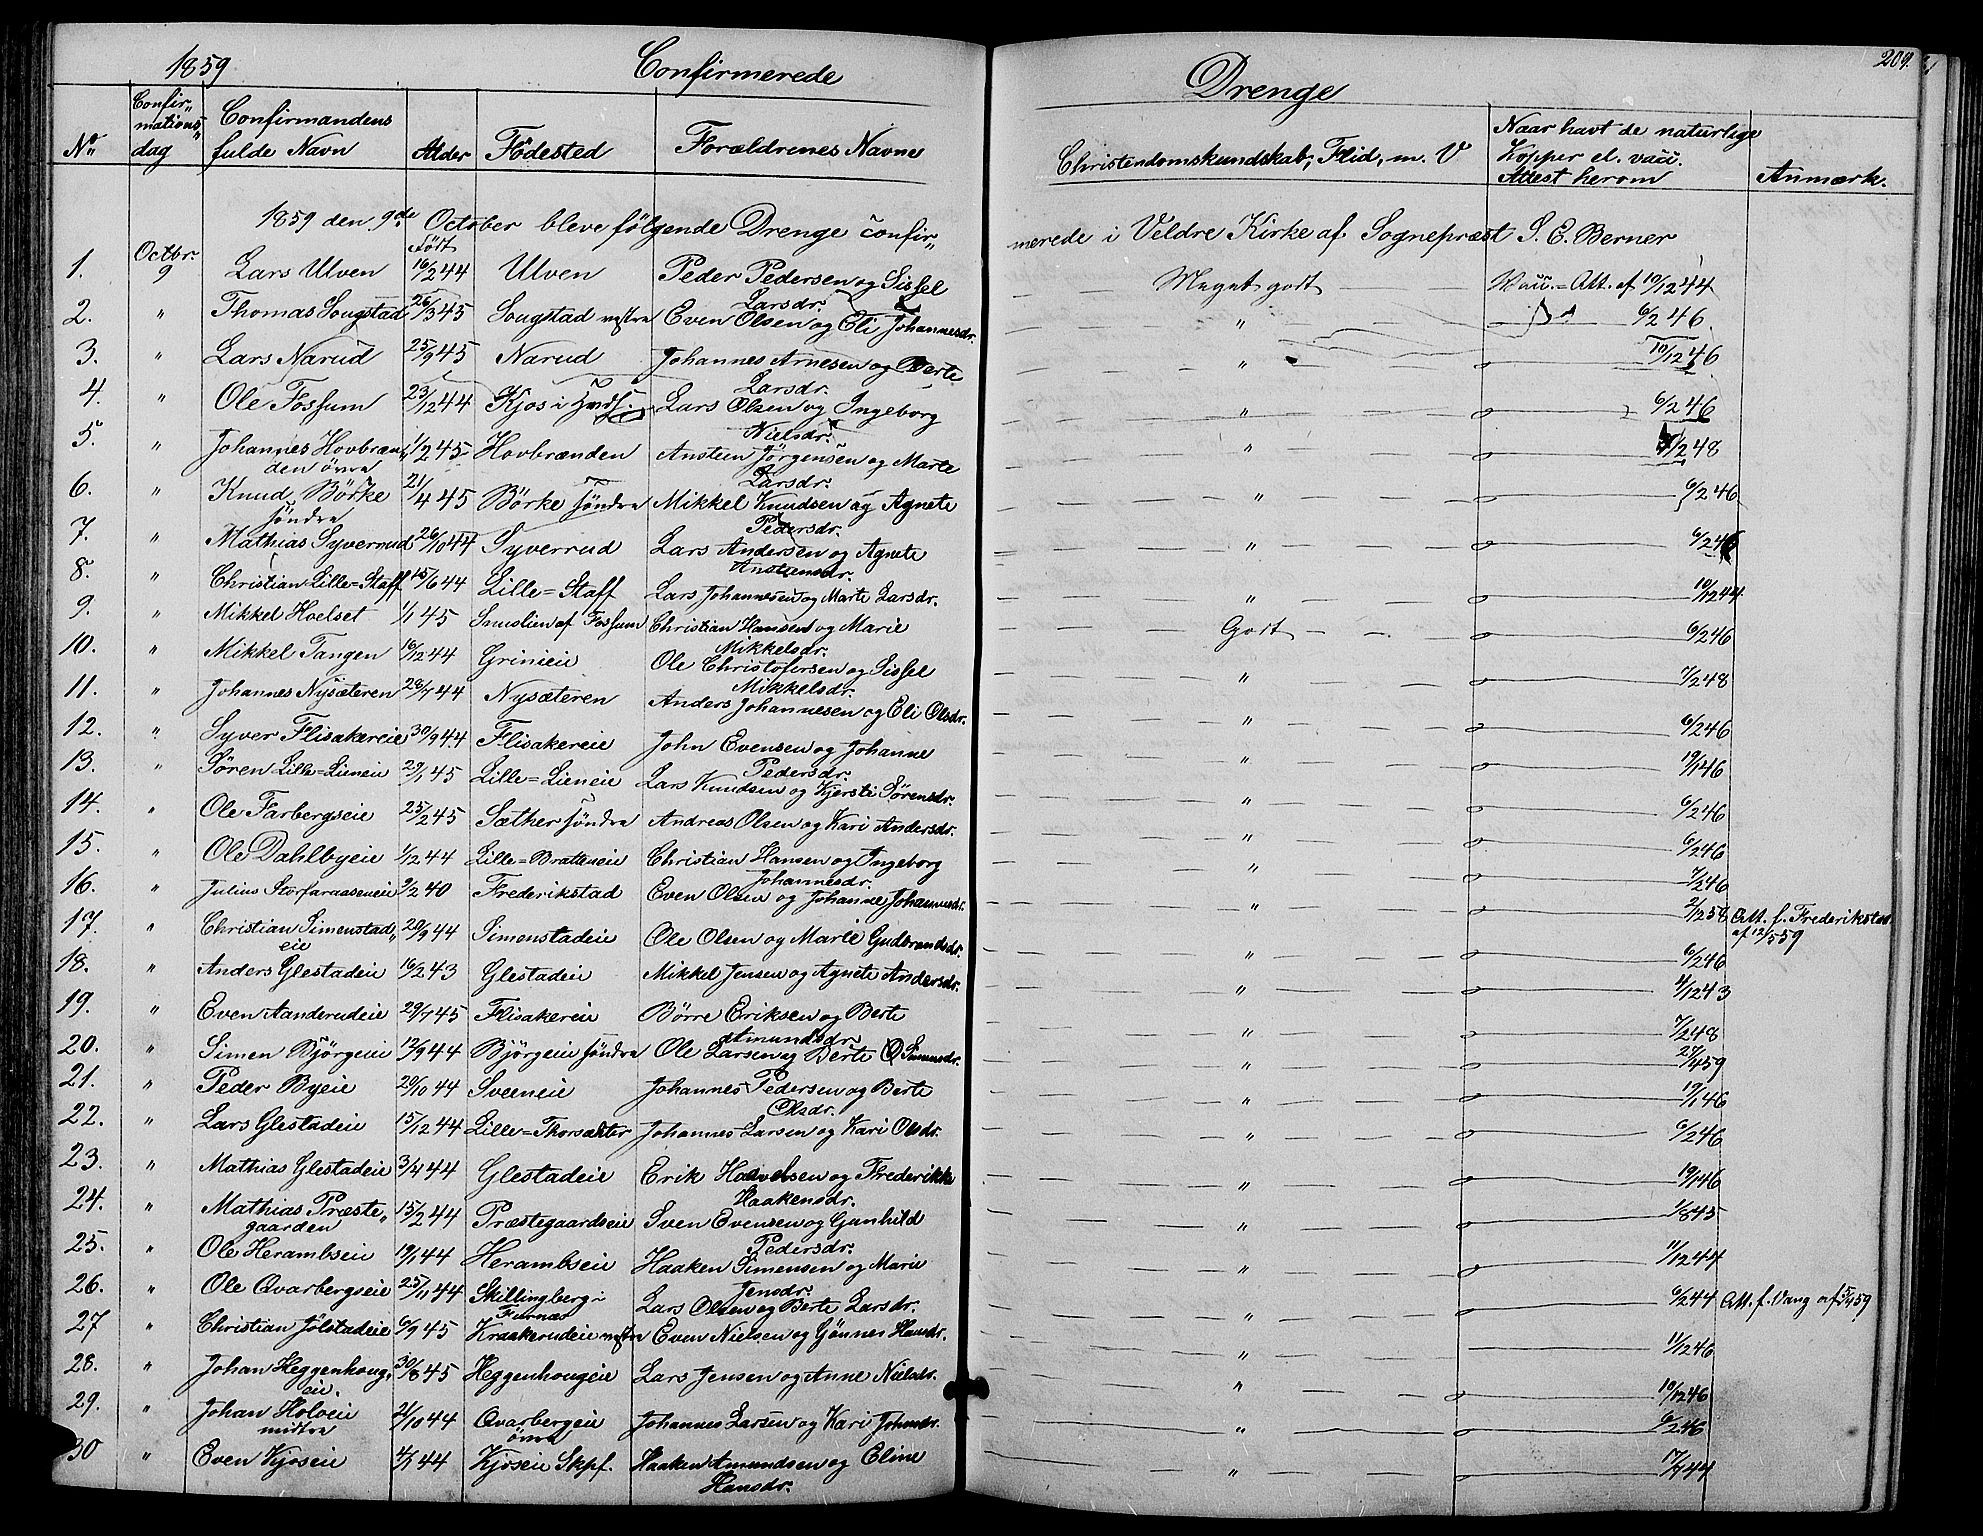 1859 Confirmerede Drenge 209.
No Confirmationsdag Confirmandens fulde Navn Alder Födested Forældrenes Navne Christendomskundskab, Flid, m. V Naar havt de naturlige Kopper el. vacc. Attest herom Anmærk.
1859 den 9de October bleve fölgende Drenge confirmerede i Veldre Kirke af Sognepræst S. C. Berner
1. Octbr. 9 Lars Ulven Födt 16/2 44 Ulven Peder Pedersen og Sissel Larsdr. Meget godt Vacc. Att. af 10/12 44
2. " Thomas Sougstad 26/3 45 Sougstad vestre Even Olsen og Eli Johannesdr. " 6/2 46.
3. " Lars Narud 25/9 45 Narud Johannes Arnesen og Berte Larsdr. " 10/12 46
4. " Ole Fossum 23/12 44 Kjos i Lars Olsen og Ingeborg Nielsdr. " 6/2 46
5. " Johannes Hovbrænden övra 1/2 45 Hovbrænden Ansteen Jörgensen og Marte Larsdr. " /2 48
6. " Knud Börke söndra 21/4 45 Börke söndra Mikkel Knudsen og Agnete Pedersdr. " 6/2 46
7. " Mathias Syverrud 26/10 44 Syverrud Lars Andersen og Agnete Anstensdr. " 6/2 46
8. " Christian Lille=Staff 15/6 44 Lille=Staff Lars Johannesen og Marte Larsdr. " 10/12 44
9. " Mikkel Hoelset 1/1 45 Snuslien af Fossum Christian Hansen og Marie Mikkelsdr. Godt 6/2 46
10. " Mikkel Tangen 16/12 44 Grinieie Ole Christofersen og Sissel Mikkelsdr. " 7/2 48
11. " Johannes Nysæteren 28/7 44 Nysæteren Anders Johannesen og Eli Olsdr. " 6/2 46
12. " Syver Flisakereie 30/9 44 Flisakereie John Evensen og Johanne Pedersdr. " 19/1 46
13. " Sören Lille=Lieneie 29/1 45 Lille=Lieneie Lars Knudsen og Kjersti Sörensdr. " 6/2 46
14. " Ole Farbergseie 25/2 45 Sæther söndra Andreas Olsen og Kari Andersdr. " 6/2 46
15. " Ole Dahlbyeie 1/12 44 Lille=Bratteneie Christian Hansen og Ingeborg Johannesdr. " 7/2 46
16. " Julius Storfaraaseneie 9/2 40 Frederikstad Even Olsen og Johanne Johannesdr. " 2/12 58 Att. f. Frederikstad af 12/5 59
17. " Christian Simenstadeie 20/9 44 Simenstadeie Ole Olsen og Marie Gudbrandsdr. " 6/2 46
18. " Anders Glestadeie 16/2 43 Glestadeie Mikkel Jensen og Agnete Andersdr. " 4/12 43
19. " Even Aanderudeie 29/7 45 Flisakereie Börre Eriksen og Berte Amundsdr. " 7/2 48
20. " Simen Björgeie 12/9 44 Björgeie söndra Ole Larsen og Berte Simensdr. " 27/4 59
21. " Peder Byeie 20/10 44 Sveeneie Johannes Pedersen og Berte Olsdr. " 19/1 46
22. " Lars Glestadeie 15/12 44 Lille=Thorsæter Johannes Larsen og Kari Olsdr. " 6/2 46
23. " Mathias Glestadeie 3/4 44 Glestadeie Erik Haavelsen og Frederikke Haakensdr. " 19/1 46
24. " Mathias Præstegaarden 15/2 44 Præstegaardseie Sven Evensen og Gunhild Pedersdr. " 1/8 45
25. " Ole Herambseie 19/1 44 Herambseie Haaken Simensen og Marie Jensdr. " 11/12 44
26. " Ole Qvarbergseie 25/11 44 Skillingberg i Furnæs Lars Olsen og Berte Larsdr. " 6/2 44 Att. f. Vang af 5/4 59
27 " Christian Jölstadeie 6/9 45 Kraakerudeie vestre Even Nielsen og Gönner Hansdr. " 11/12 46
28. " Johan Heggenhougeie. 30/8 45 Heggenhougeie Lars Jensen og Anne Nielsdr. " 10/12 46
29. " Johan Holoeie midtra 21/10 44 Qvarbergeie övra Johannes Larsen og Kari Johnsdr. " 6/2 46
30 " Even Kjoseie 4/7 44 Kjoseie Skpf. Haaken Amundsen og Eline Hansdr. " 17/7 44